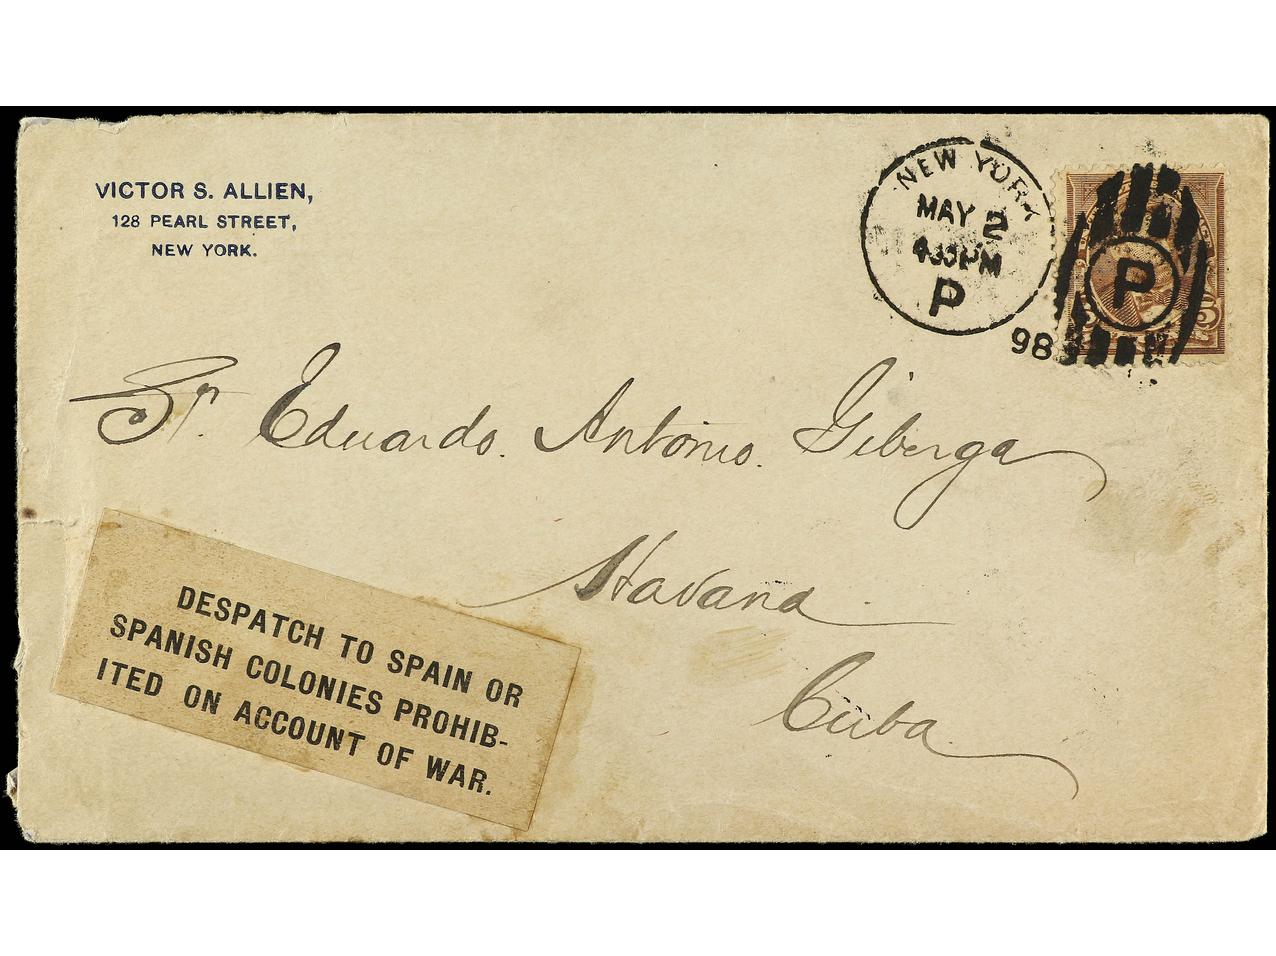 VICTOR S. ALLIEN,
128 PEARL STREET,
NEW YORK.
NEW YORK
MAY 2
430PM
P
98
P
5
Sr. Eduardo. Antonio. Giberga
Havana
Cuba.
DESPATCH TO SPAIN OR
SPANISH COLONIES PROHIB-
ITED ON ACCOUNT OF WAR.